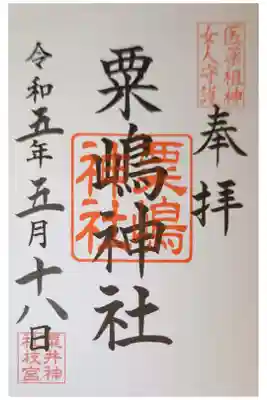 医薬祖神
女人守護
奉拝
粟嶋神社
粟嶋
神社
令和五年五月十八日
粟井神
社枝宮